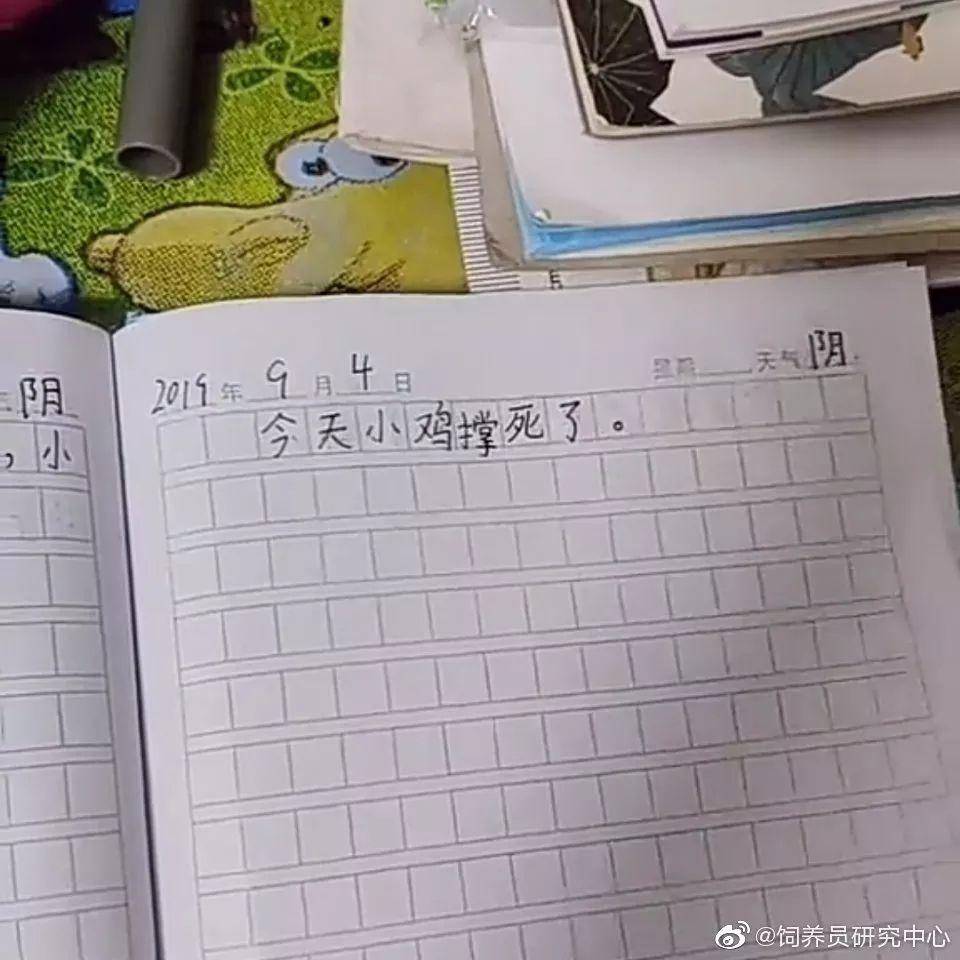 阴
，小
2019年 9月 4日 星期 天气 阴
今天小鸡撑死了。
@饲养员研究中心